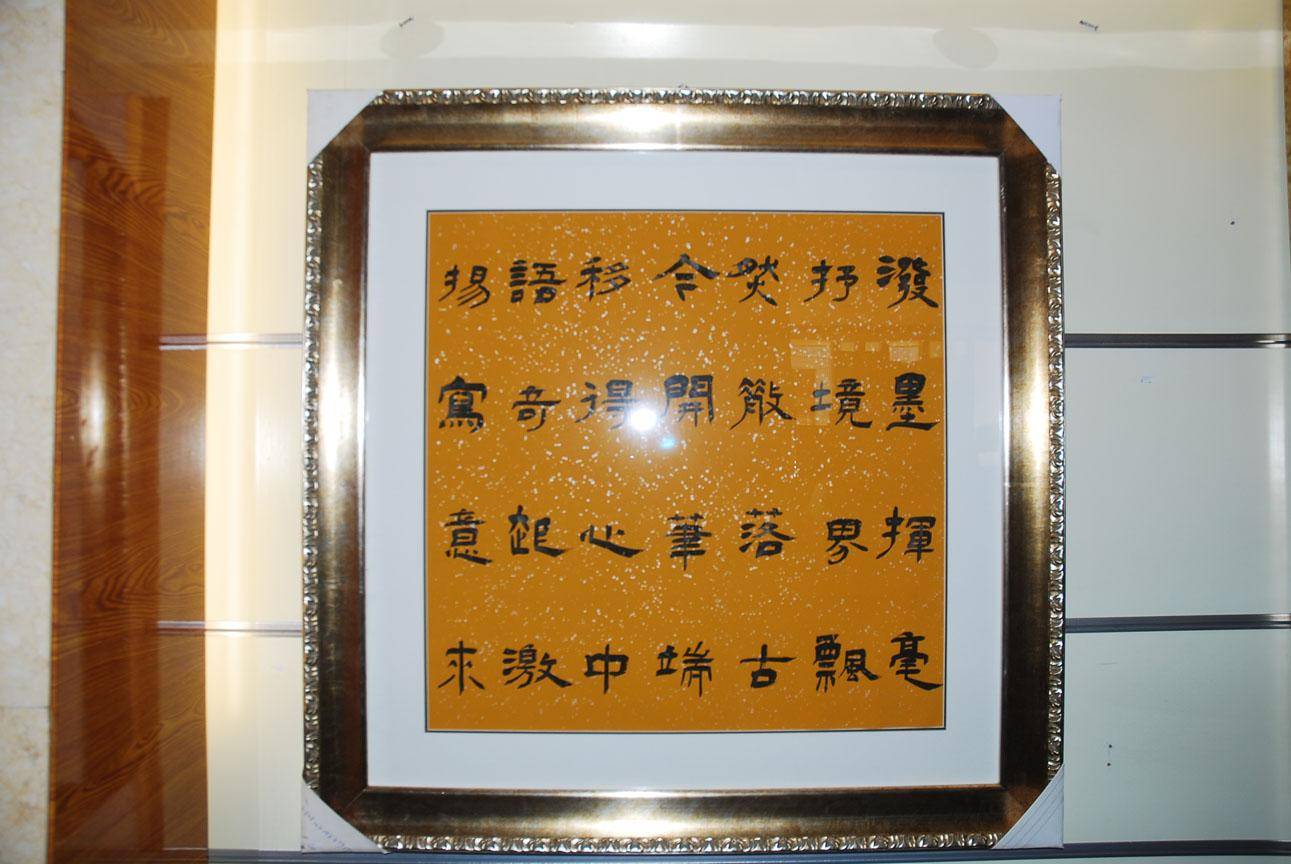 潑墨揮毫
抒境界飄
然散落古
今開筆端
移得心中
語奇起激
揚寫意來